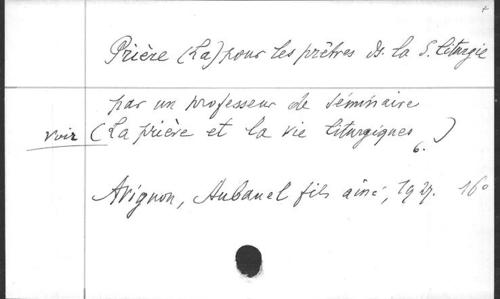 Prière (La) pour les prêtres ds. la S. Liturgie
par un professeur de séminaire
voir (La prière et la vie liturgiques 6.)
Avignon, Aubanel fils aîné, 1927. 16°